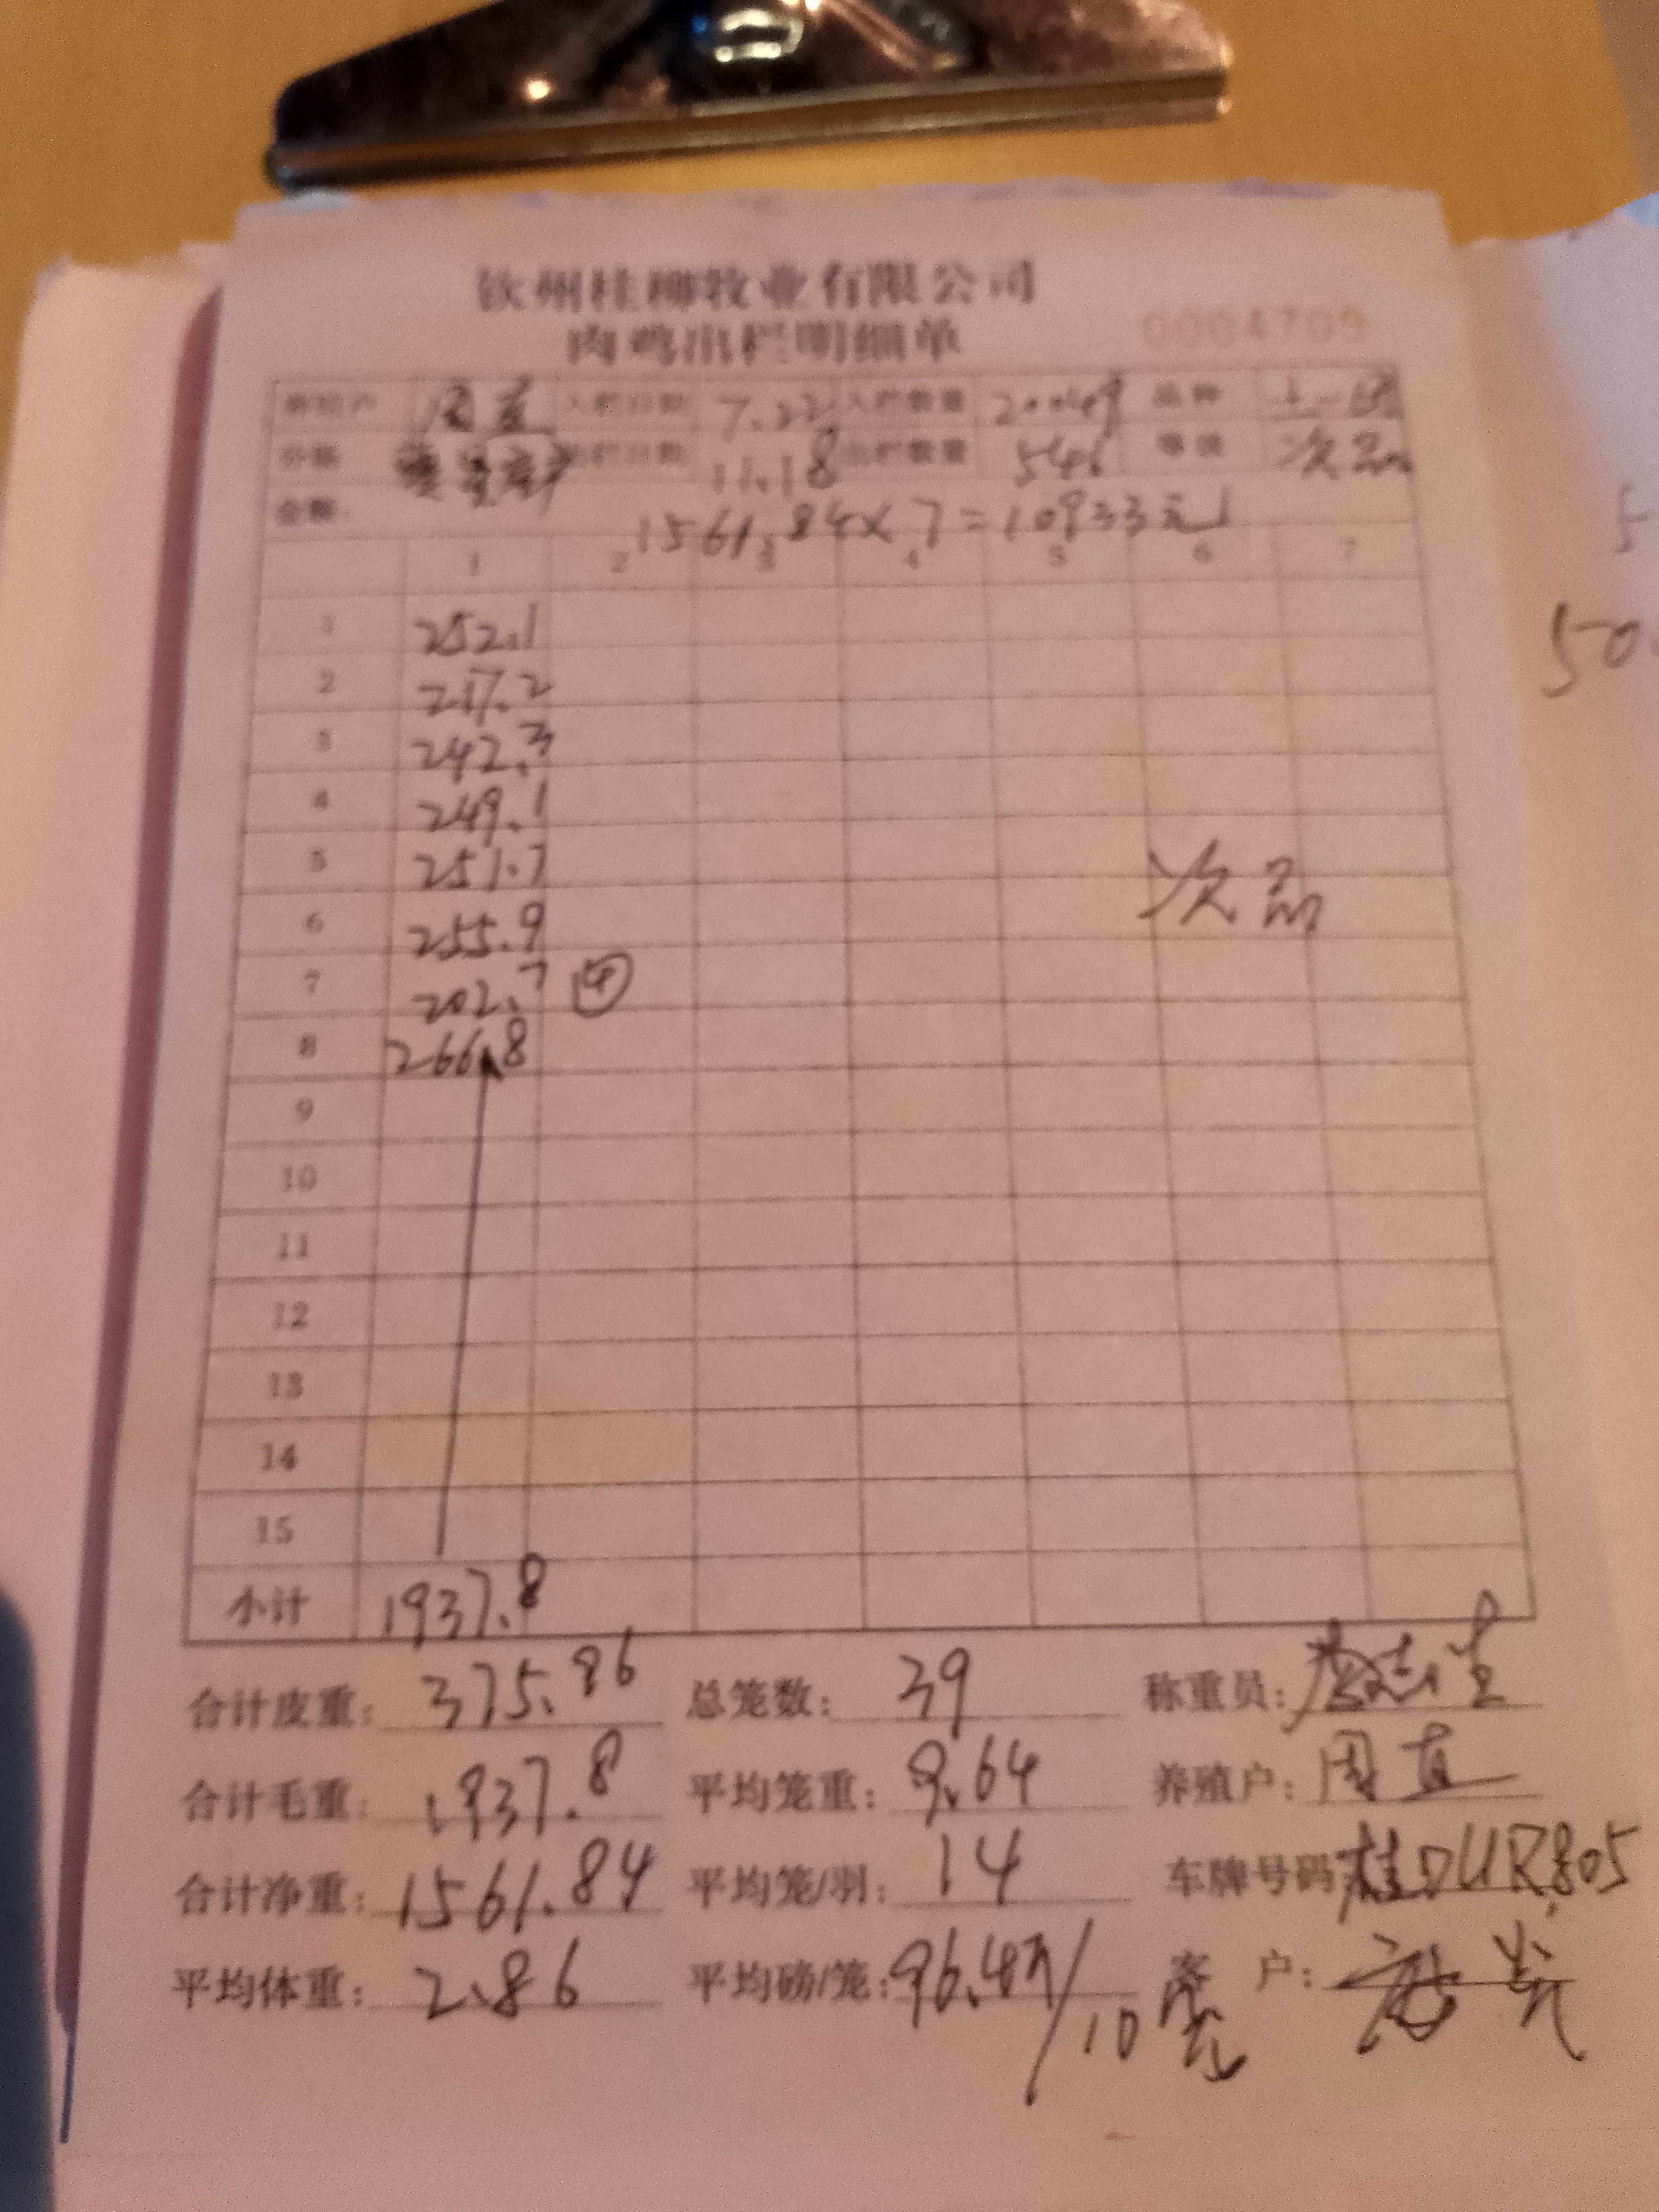 钦州桂柳牧业有限公司
肉鸡出栏明细单 0004709
养殖户 周 入栏日期 7.22 入栏数量 20049 品种
分栋 出栏日期 11.18 出栏数量 546 等级 次品
金额: 1561.84×7=10933元
1 2 3 4 5 6 7
1 252.1
2 217.2
3 242.3
4 249.1
5 251.7
6 255.9 次品
7 202.7 ④
8 266.8
9
10
11
12
13
14
15
小计 1937.8
合计皮重: 375.96 总笼数: 39 称重员:
合计毛重: 1937.8 平均笼重: 9.64 养殖户: 周
合计净重: 1561.84 平均笼/羽: 14 车牌号码 桂DUR805
平均体重: 2.86 平均磅/笼: 96.4斤/10 客 户:
50